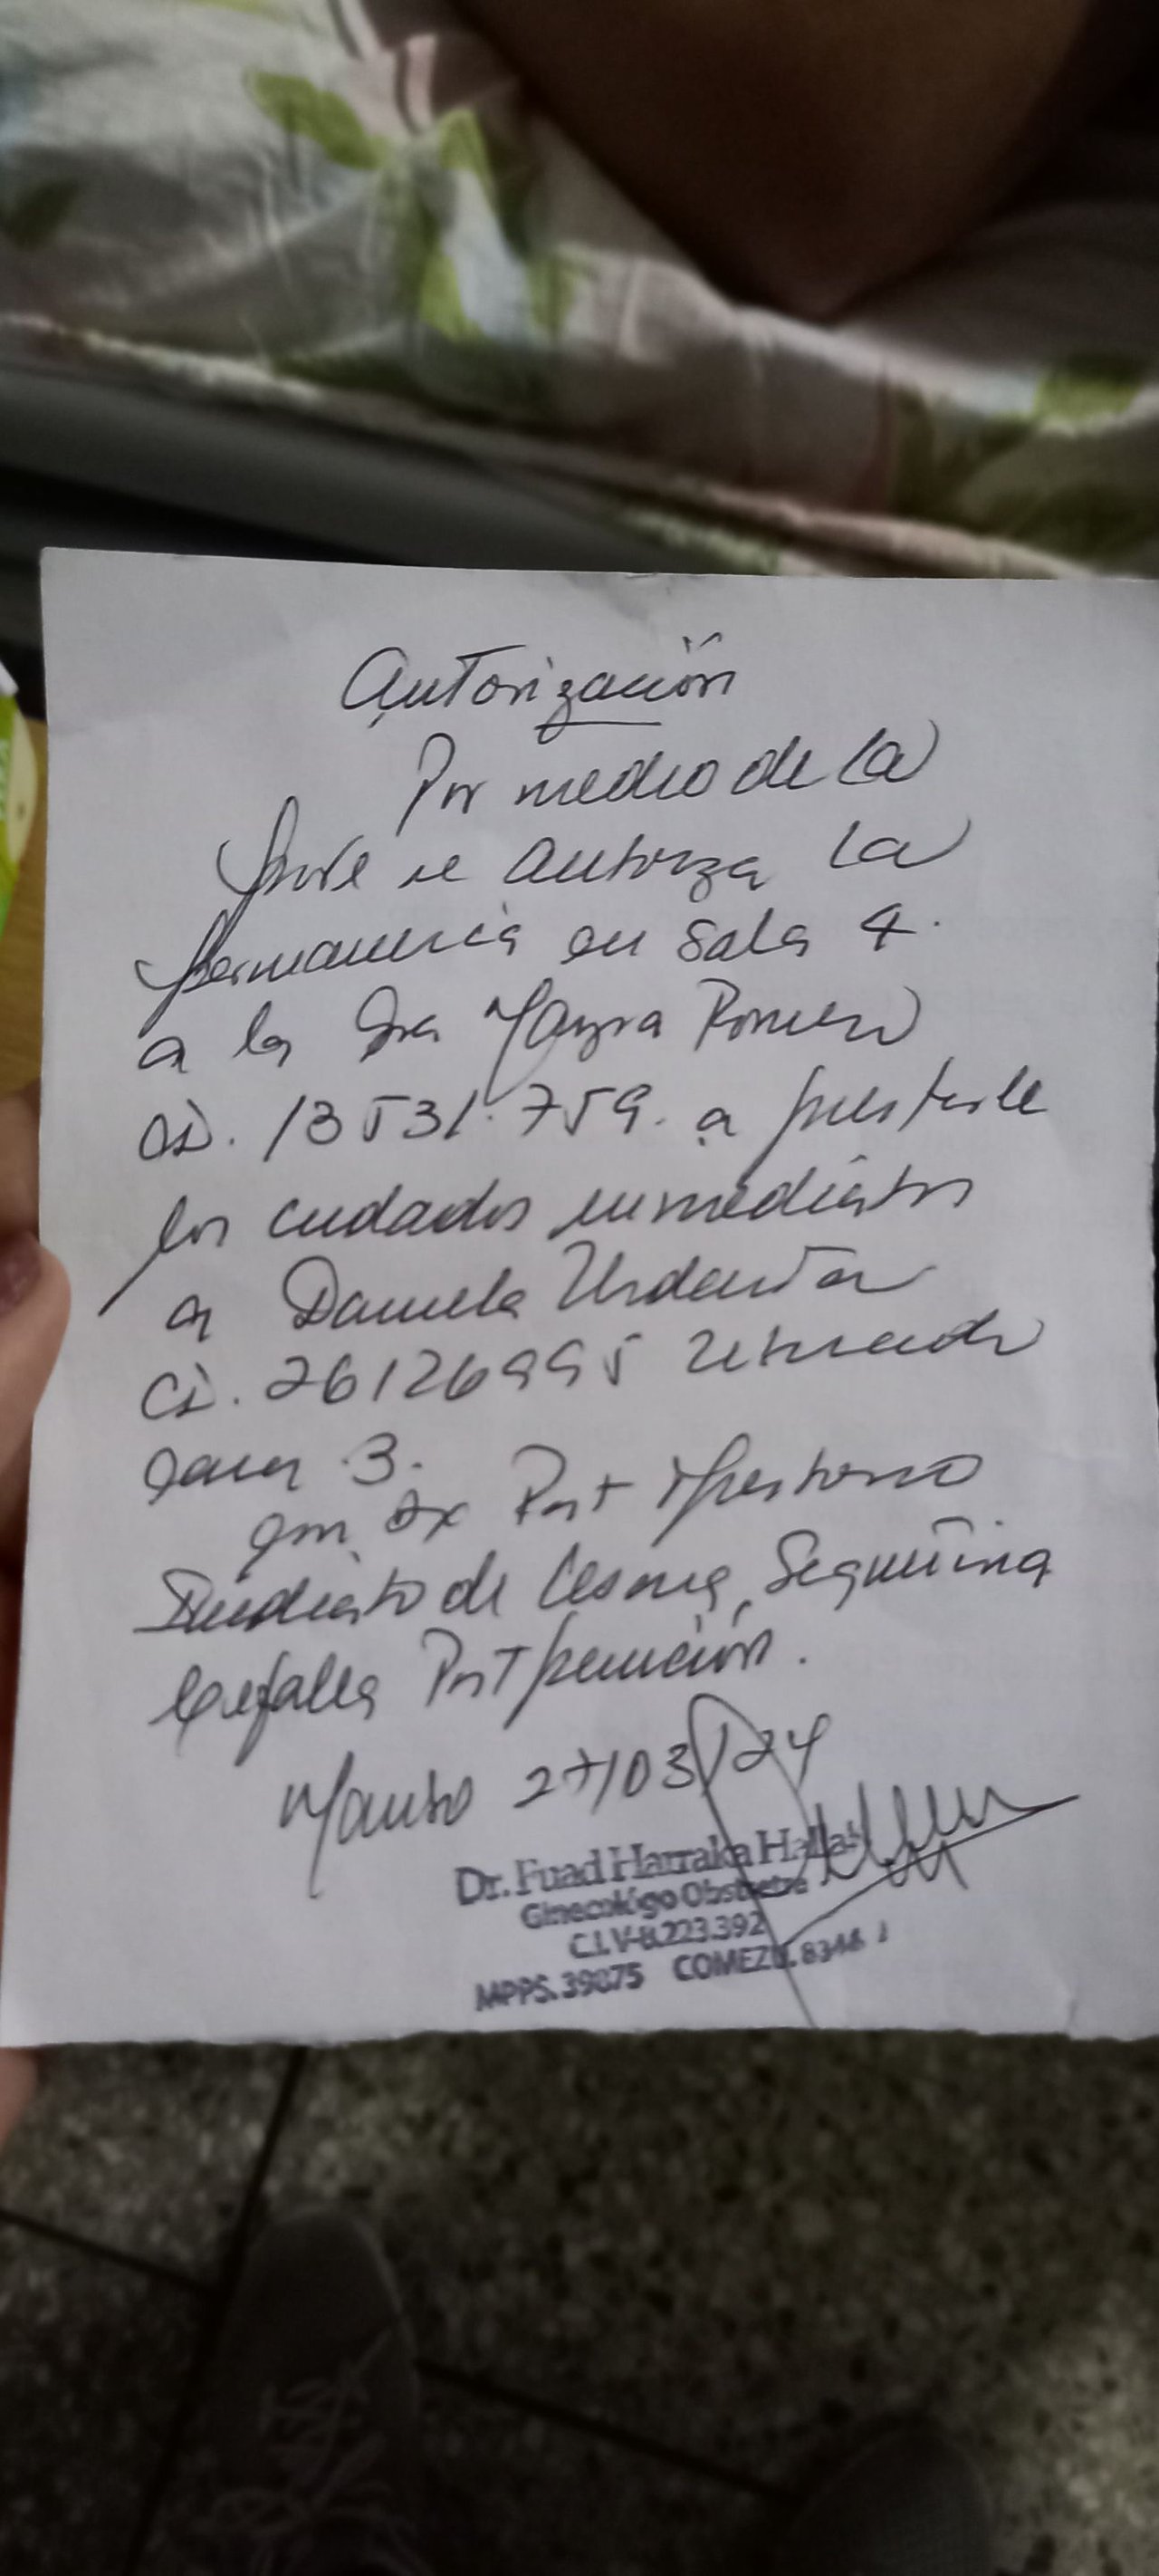 Autorización
Por medio de la
se autoriza la
permanencia en sala 4.
a la Sra Mayra Romero
CI. 13531.759. a prestarle
los cuidados inmediatos
a Daniela Urdaneta
CI. 26126995
cama 3.
con Dx Post
Inmediato de Cesarea, Segmentina
Cefalea Post punción.
27/03/24
Dr. Fuad Harraka Hallak
Ginecológo Obstetra
C.I. V-8.223.392
MPPS. 39875 COMEZU. 8348